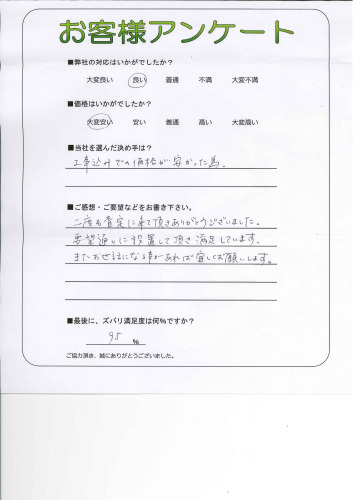 お客様アンケート
■弊社の対応はいかがでしたか？
大変良い 良い 普通 不満 大変不満
■価格はいかがでしたか？
大変安い 安い 普通 高い 大変高い
■当社を選んだ決め手は？
工事込みでの価格が安かった為。
■ご感想・ご要望などをお書き下さい。
二度も査定に来て頂きありがとうございました。
要望通りに設置して頂き満足しています。
またお世話になる事があれば宜しくお願いします。
■最後に、ズバリ満足度は何%ですか？
95 %
ご協力頂き、誠にありがとうございました。